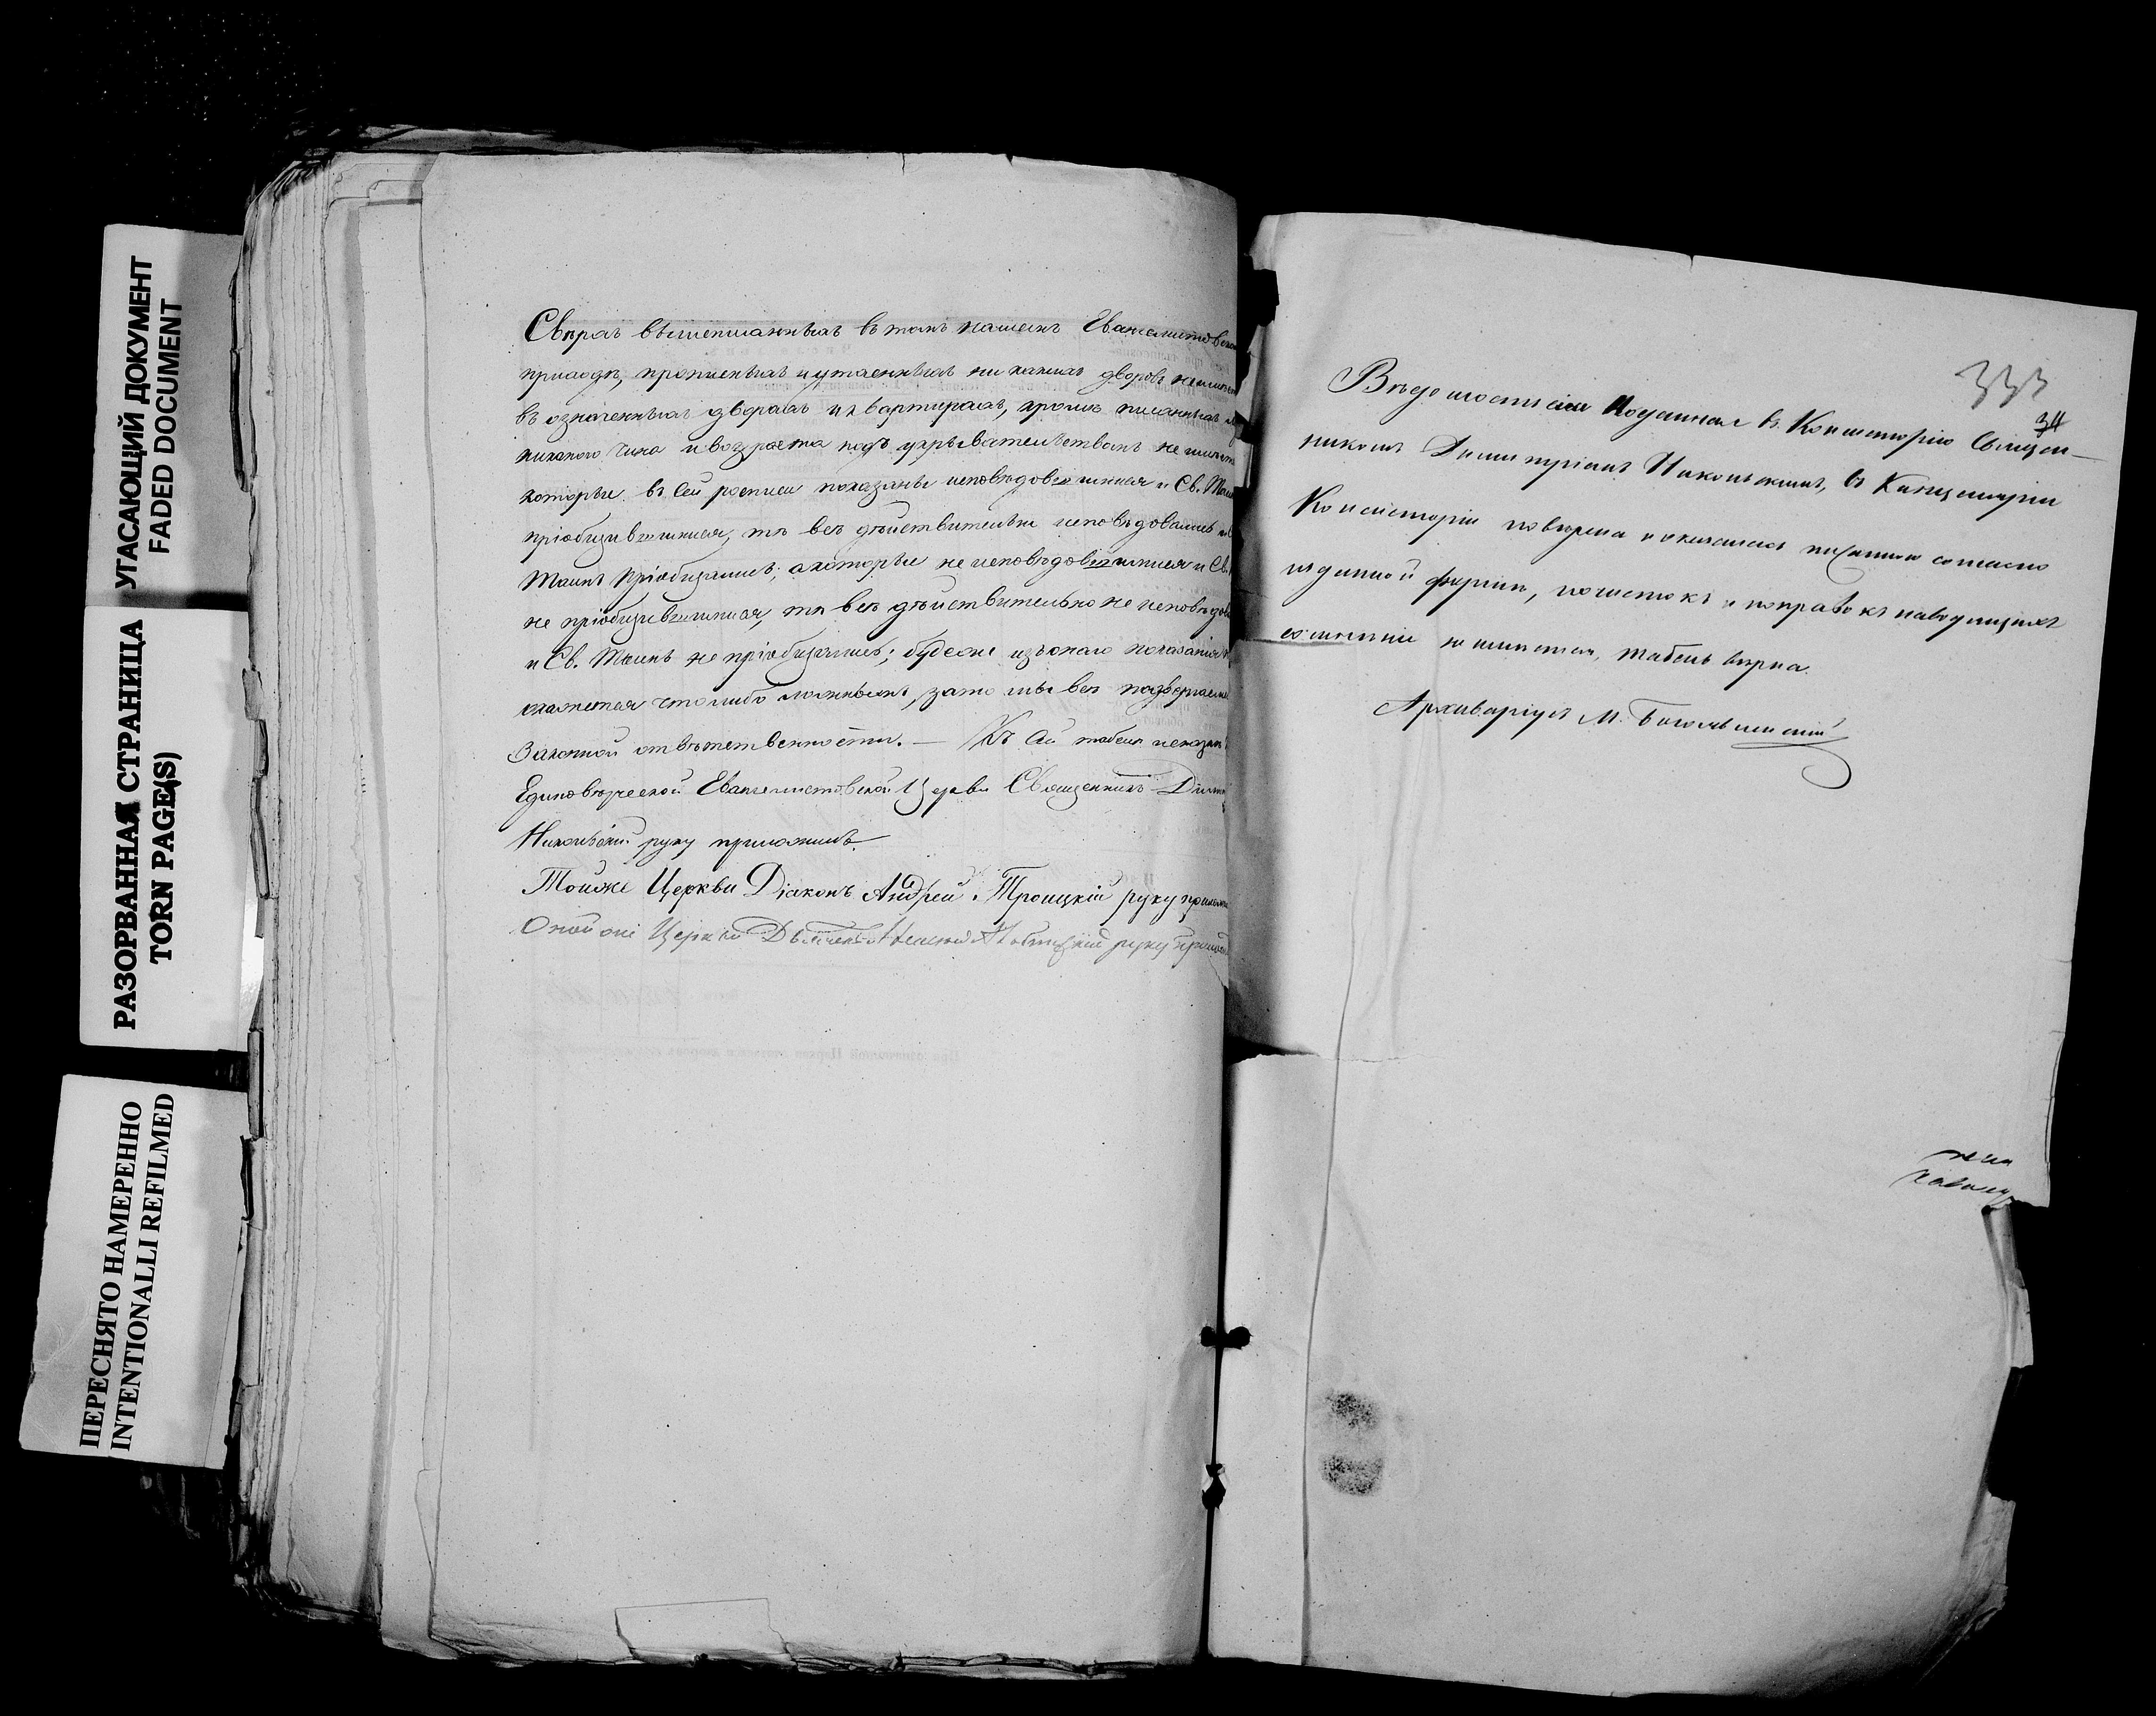 УГАСАЮЩИЙ ДОКУМЕНТ
FADED DOCUMENT
РАЗОРВАННАЯ СТРАНИЦА
TORN PAGE(S)
ПЕРЕСНЯТО НАМЕРЕННО
INTENTIONALLI REFILMED
Сверхъ вышеписанныхъ въ томъ нашемъ Евангелистовск
приходѣ, прописныхъ и утаенныхъ ни какихъ дворовъ
въ означенныхъ дворахъ и квартирахъ, кромѣ писанныхъ
никакого чина и возраста подъ укрывательствомъ не
которые въ сей росписи показаны исповѣдовавшимися и Св. Таин
пріобщившимися, тѣ всѣ дѣйствительно исповѣдовались и
Таинъ пріобщались; а которые не исповѣдовавшимися и Св.
не пріобщившимися, тѣ всѣ дѣйствительно не исповѣдов
и Св. Таинъ не пріобщались; буде же изъ онаго показанія
окажется что либо ложнымъ, за то мы всѣ подвергаемся
Законной отвѣтственности. — Къ сей табели
Единовѣрческой Евангелистовской Церкви Священникъ Дим
Никольскій руку приложилъ.
Тойже Церкви Діаконъ Андрей Троицкій руку прилож
Оной же Церкви Дьячекъ руку прилож
333
34
Вѣдомость сія поданная въ Консисторію Священ-
никомъ Димитріемъ Никольскимъ, въ Канцеляріи
Консисторіи повѣрена и оказалась писанною согласно
изданной формѣ, почистокъ и поправокъ наводящихъ
сомнѣніе не имѣется, табель вѣрна.
Архиваріусъ М. Боголюбскій